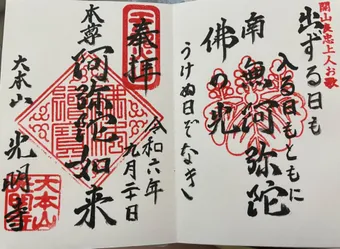 開山良忠上人お歌
出ずる日も
入る日もともに
南無阿弥陀
佛の光
うけぬ日ぞなき
奉拝
令和六年
九月二十日
本尊阿弥陀如来
大本山 光明寺
大本山
光明寺